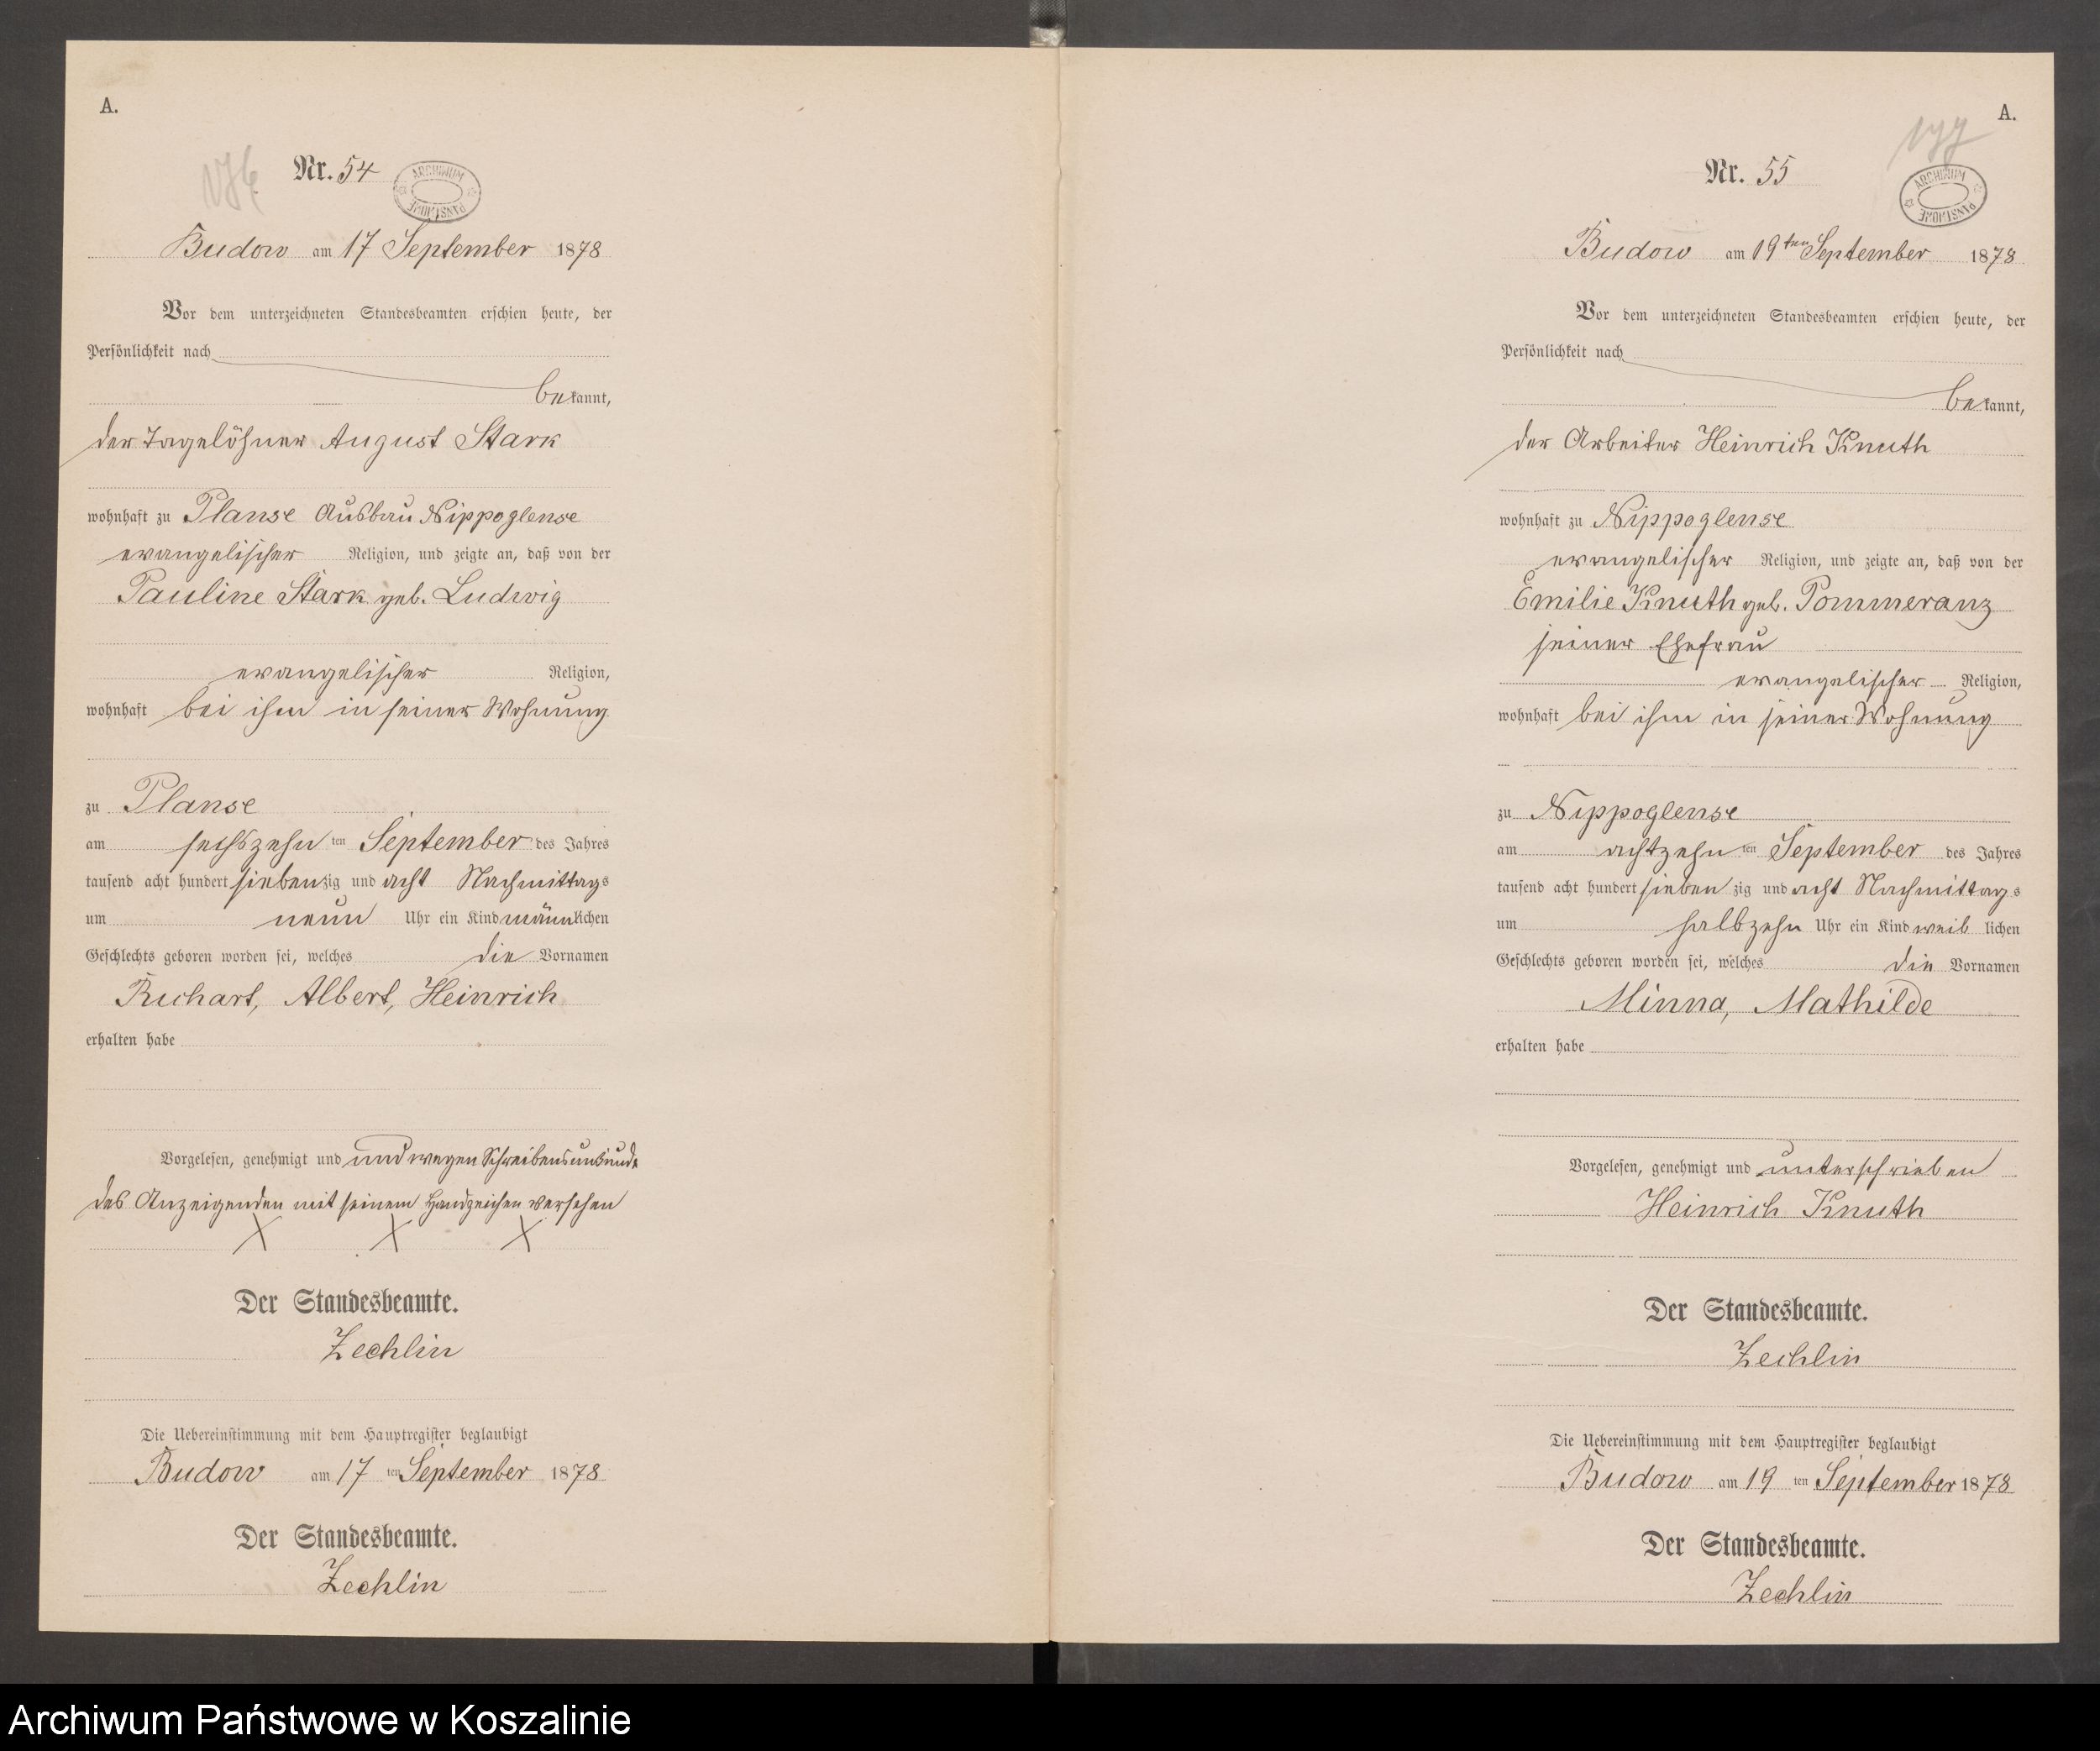 A.
Nr. 54
ARCHIWUM PAŃSTWOWE
Budow am 17 September 1878
Vor dem unterzeichneten Standesbeamten erschien heute, der
Persönlichkeit nach
bekannt,
der Tagelöhner August Stark
wohnhaft zu Planse Ausbau Nippoglense
evangelischer Religion, und zeigte an, daß von der
Pauline Stark geb. Ludwig
evangelischer Religion,
wohnhaft bei ihm in seiner Wohnung
zu Planse
am sechszehn ten September des Jahres
tausend acht hundert siebenzig und acht Nachmittags
um neun Uhr ein Kind männlichen
Geschlechts geboren worden sei, welches die Vornamen
Richart, Albert, Heinrich
erhalten habe
Vorgelesen, genehmigt und und wegen Schreibensunkunde
des Anzeigenden mit seinem Handzeichen versehen
X X X
Der Standesbeamte.
Zechlin
Die Uebereinstimmung mit dem Hauptregister beglaubigt
Budow am 17 ten September 1878
Der Standesbeamte.
Zechlin
A.
Nr. 55
ARCHIWUM PAŃSTWOWE
Budow am 19ten September 1878
Vor dem unterzeichneten Standesbeamten erschien heute, der
Persönlichkeit nach
bekannt,
der Arbeiter Heinrich Knuth
wohnhaft zu Nippoglense
evangelischer Religion, und zeigte an, daß von der
Emilie Knuth geb. Pommeranz
seiner Ehefrau
evangelischer Religion,
wohnhaft bei ihm in seiner Wohnung
zu Nippoglense
am achtzehn ten September des Jahres
tausend acht hundert siebenzig und acht Nachmittags
um halbzehn Uhr ein Kind weiblichen
Geschlechts geboren worden sei, welches die Vornamen
Minna, Mathilde
erhalten habe
Vorgelesen, genehmigt und unterschrieben
Heinrich Knuth
Der Standesbeamte.
Zechlin
Die Uebereinstimmung mit dem Hauptregister beglaubigt
Budow am 19 ten September 1878
Der Standesbeamte.
Zechlin
Archiwum Państwowe w Koszalinie